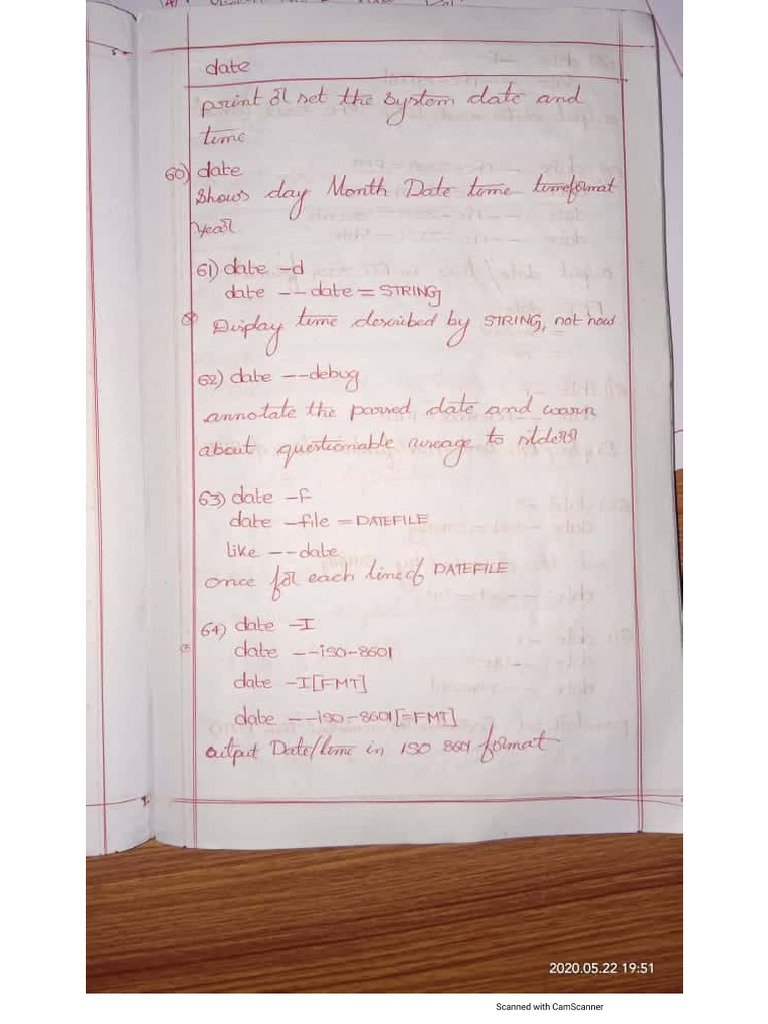 date
print or set the System date and
time
60) date
Shows day Month Date time timeformat
year
61) date -d
date --date = STRING
Display time described by STRING, not now
62) date --debug
annotate the parsed date and warn
about questionable useage to stderr
63) date -f
date -file = DATEFILE
like --date
once for each line of DATEFILE
64) date -I
date --iso-8601
date -I[FMT]
date --iso-8601[=FMT]
output Date/time in ISO 8601 format
2020.05.22 19:51
Scanned with CamScanner